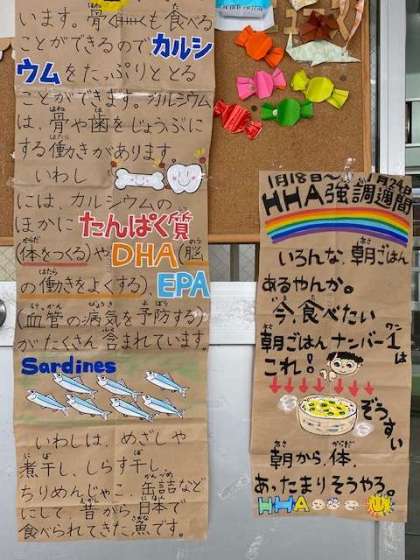 います。骨も食べる
ことができるのでカルシ
ウムをたっぷりととる
ことができます。カルシウム
は、骨や歯をじょうぶに
する働きがあります。
いわし
には、カルシウムの
ほかにたんぱく質
(体をつくる)やDHA(脳
の働きをよくする)、EPA
(血管の病気を予防する)
がたくさん含まれています。
Sardines
いわしは、めざしや
煮干し、しらす干し、
ちりめんじゃこ、缶詰など
にして、昔から、日本で
食べられてきた魚です。
1月18日~1月24日
HHA強調週間
いろんな、朝ごはん
あるやんか。
今、食べたい
朝ごはんナンバー1は
これ!
ぞうすい
朝から、体、
あったまりそうやろ。
HHA